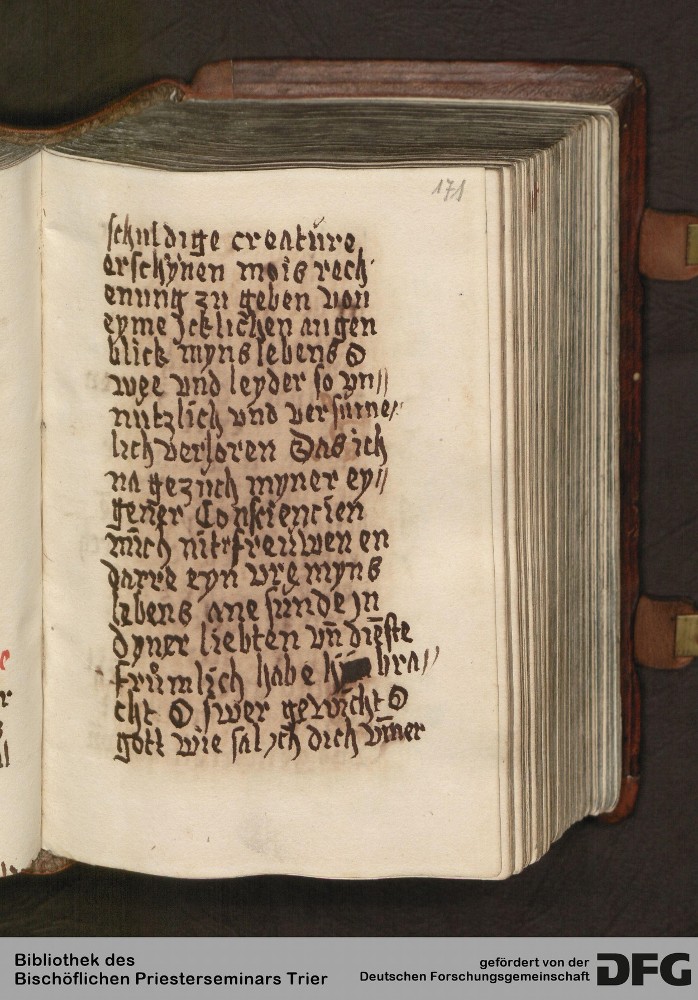 171
schuldige creature
erschynen mois rech
enung zu geben von
eyme jcklichen augen
blick myns lebens O
wee vnd leyder so vn//
nutzlich vnd versume//
lich verloren Das ich
na gezuch myner ey//
gener Consciencien
mich nit erfreuwen en
darre eyn vre myns
lebens ane sunde jn
dyner liebten vn̄ dieste
frůmlich habe bra//
cht O swer gewicht O
gott wie sal ich dich ȳmer
Bibliothek des
Bischöflichen Priesterseminars Trier
gefördert von der
Deutschen Forschungsgemeinschaft
DFG